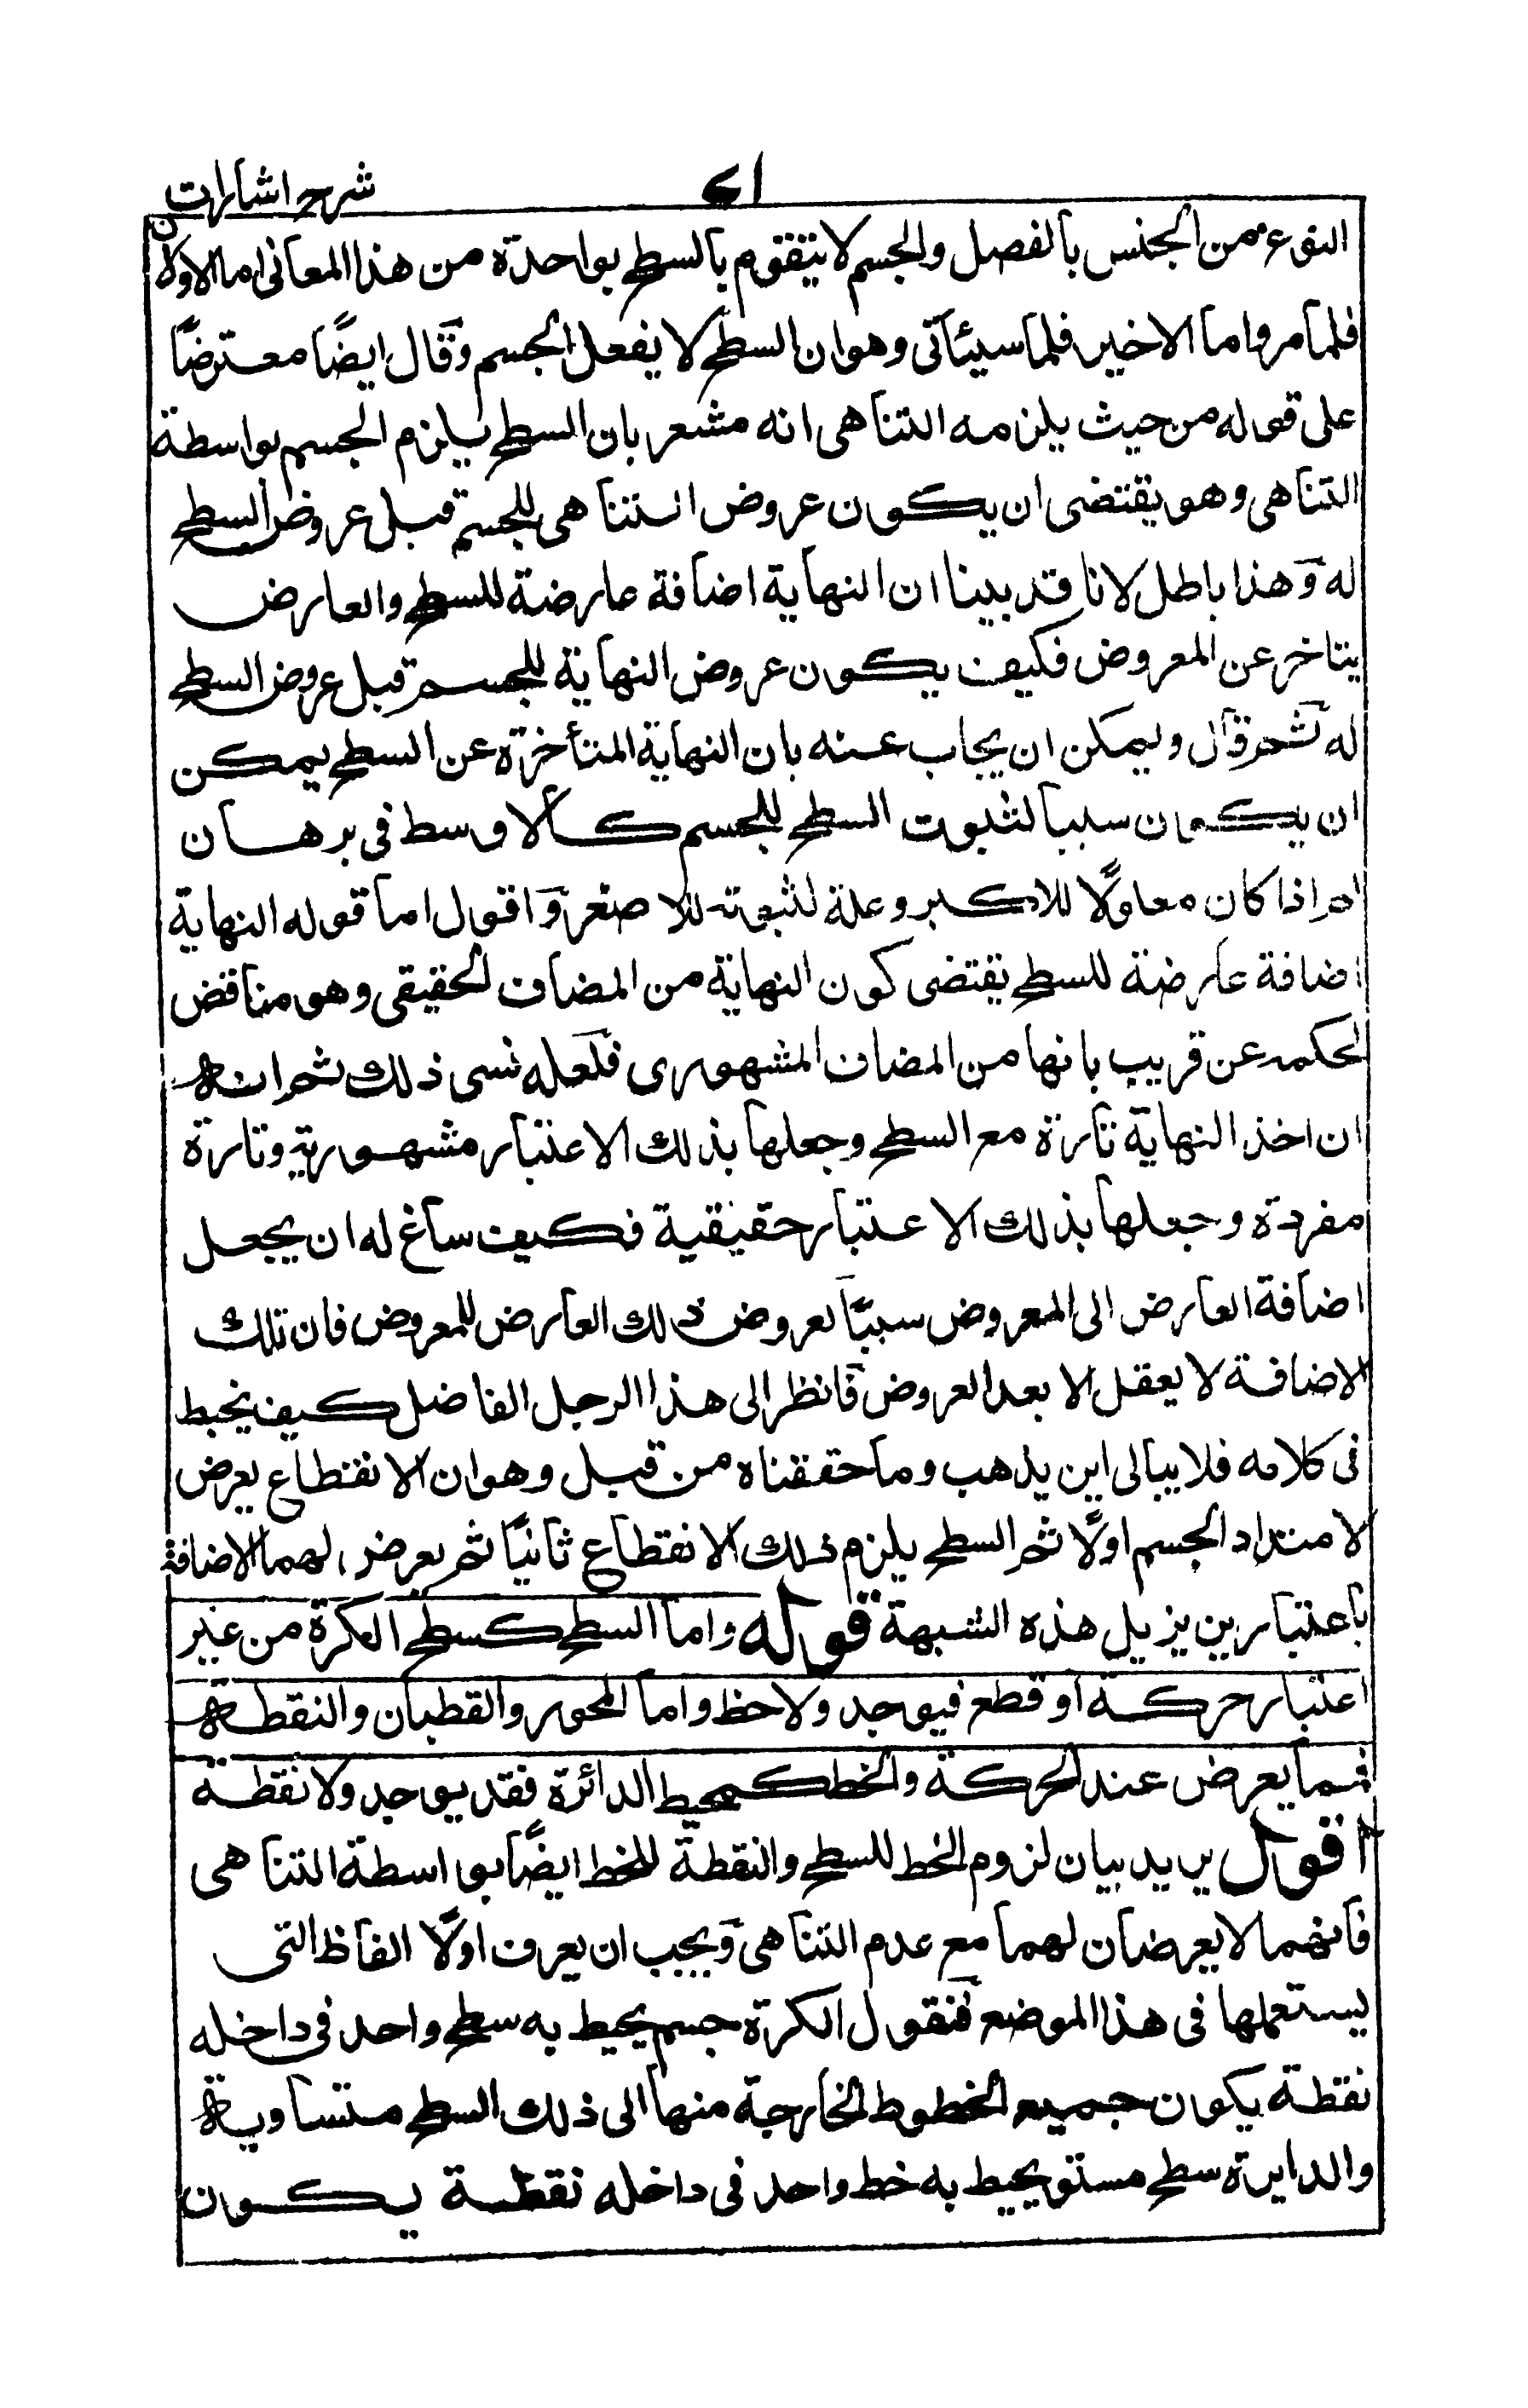 شرح اشارات
النوع من الجنس بالفصل والجسم لا يتقوم بالسطح بواحدة من هذا المعانى اما الاولان
فلما مر واما الاخير فلما سيئاتى وهو ان السطح لا يفعل الجسم وقال ايضًا معترضًا
على قوله من حيث يلزمه التناهى انه مشعر بان السطح يلزم الجسم بواسطة
التناهى وهو يقتضى ان يكون عروض التناهى للجسم قبل عروض السطح
له وهذا باطل لانا قد بينا ان النهاية اضافة عارضة للسطح والعارض
يتاخر عن المعروض فكيف يكون عروض النهاية للجسم قبل عروض السطح
له ثم قال ويمكن ان يجاب عنه بان النهاية المتأخرة عن السطح يمكن
ان يكون سببا لثبوت السطح للجسم كالاوسط فى برهان
ان اذا كان معلولًا للاكبر وعلة لثبوته للاصغر واقول اما قوله النهاية
اضافة عارضة للسطح يقتضى كون النهاية من المضاف الحقيقى وهو مناقض
لحكمه عن قريب بانها من المضاف المشهورى فلعله نسى ذلك ثم انه
ان اخذ النهاية تارة مع السطح وجعلها بذلك الاعتبار مشهورية وتارة
مفردة وجعلها بذلك الاعتبار حقيقية فكيف ساغ له ان يجعل
اضافة العارض الى المعروض سببًا لعروض ذلك العارض للمعروض فان تلك
الاضافة لا يعقل الا بعد العروض فانظر الى هذا الرجل الفاضل كيف يخبط
فى كلامه فلا يبالى اين يذهب وما حققناه من قبل وهو ان الانقطاع يعرض
لامتداد الجسم اولًا ثم السطح يلزم ذلك الانقطاع ثانيًا ثم يعرض لهما الاضافة
باعتبارين يزيل هذه الشبهة قوله واما السطح كسطح الكرة من غير
اعتبار حركة او قطع فيوجد ولا خط واما المحور والقطبان والنقطة
فمما يعرض عند الحركة والخط كمحيط الدائرة فقد يوجد ولا نقطة
اقول يريد بيان لزوم الخط للسطح والنقطة للخط ايضًا بواسطة التناهى
فانهما لا يعرضان لهما مع عدم التناهى ويجب ان يعرف اولًا الفاظ التى
يستعملها فى هذا الموضع فنقول الكرة جسم يحيط به سطح واحد فى داخله
نقطة يكون جميع الخطوط الخارجة منها الى ذلك السطح متساوية
والدايرة سطح مستو يحيط به خط واحد فى داخله نقطة يكون